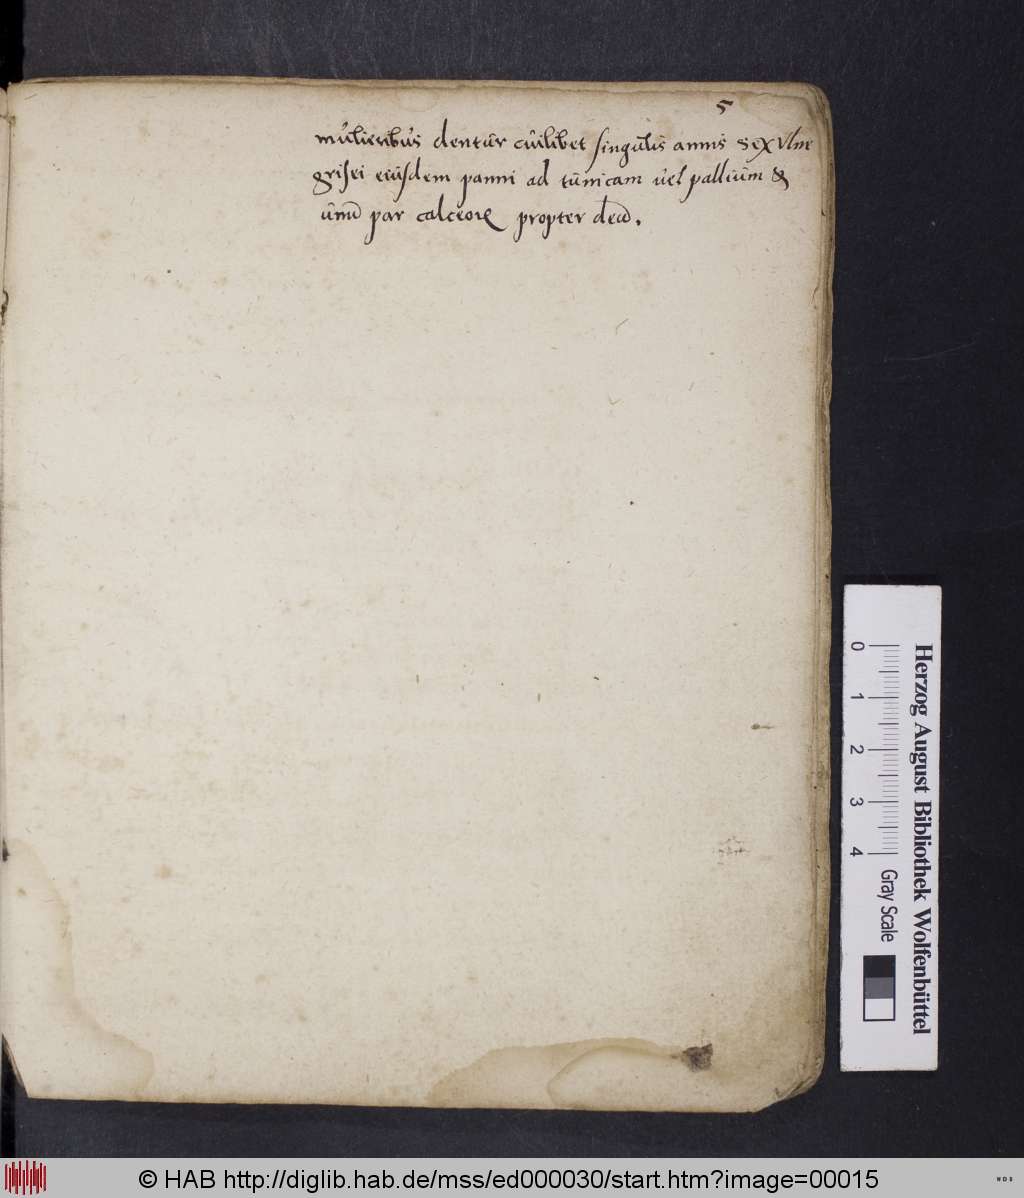 5
mulieribus dentur cuilibet singulis annis sex Vlne
grisei eiusdem panni ad tunicam vel pallium &
unū par calceoꝝ propter deū.
Herzog August Bibliothek Wolfenbüttel
0 1 2 3 4 Gray Scale
© HAB http://diglib.hab.de/mss/ed000030/start.htm?image=00015